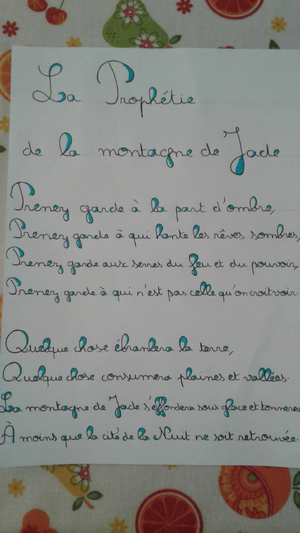 La Prophétie
de la montagne de Jade
Prenez garde à la part d'ombre,
Prenez garde à qui hante les rêves sombres,
Prenez garde aux serres du feu et du pouvoir,
Prenez garde à qui n'est pas celle qu'on croit voir
Quelque chose ébranlera la terre,
Quelque chose consumera plaines et vallées.
La montagne de Jade s'effondera sous glace et tonnerre
À moins que la cité de la Nuit ne soit retrouvée.